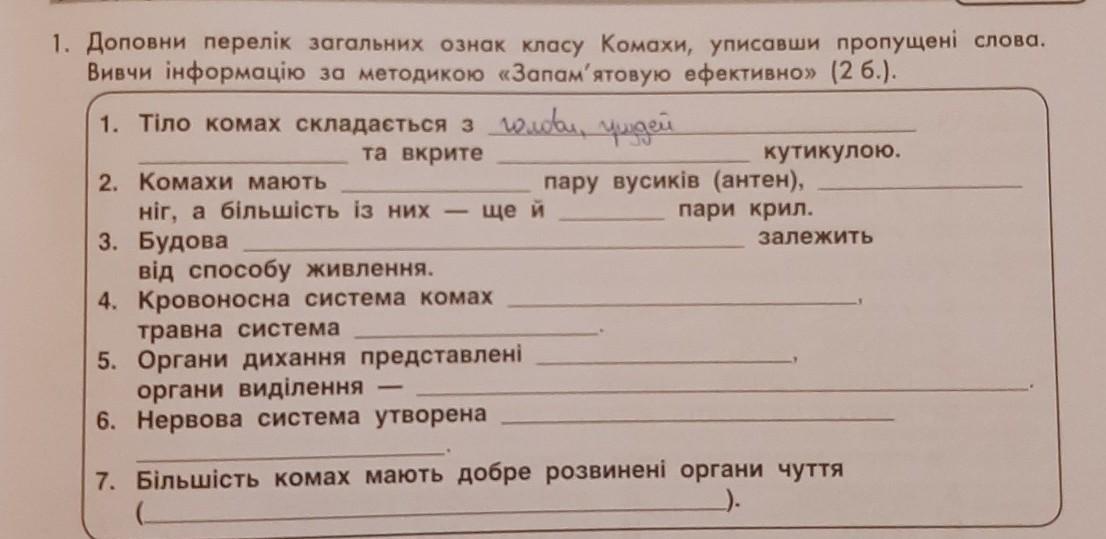 1. Доповни перелік загальних ознак класу Комахи, уписавши пропущені слова.
Вивчи інформацію за методикою «Запам'ятовую ефективно» (2 б.).
1. Тіло комах складається з голови, грудей
та вкрите кутикулою.
2. Комахи мають пару вусиків (антен),
ніг, а більшість із них — ще й пари крил.
3. Будова залежить
від способу живлення.
4. Кровоносна система комах ,
травна система .
5. Органи дихання представлені ,
органи виділення — .
6. Нервова система утворена
.
7. Більшість комах мають добре розвинені органи чуття
( ).